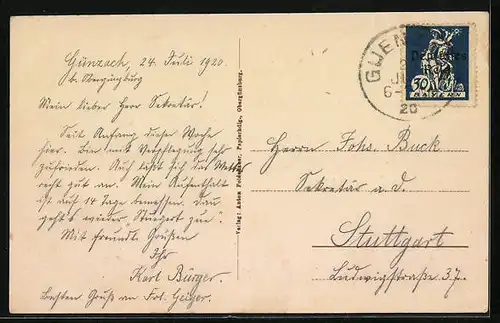 Günzach, 24. Juli 1920.
b. Obergünzburg
Mein lieber Herr Sekretär!
Seit Anfang dieser Woche
hier. Bin mit Verpflegung sehr
zufrieden. Auch läßt sich das Wetter
recht gut an. Mein Aufenthalt
ist auf 14 Tage bemessen. Dann
geht's wieder "Stuegert zue".
Mit freundl. Grüßen
Ihr
Karl Bürger.
Besten Gruß an Frl. Geiger.
Verlag: Anton Papierhdlg., Obergünzburg.
GUEN
20
30
BAYERN
Herrn Johs. Buck
Sekretär a. D.
Stuttgart
Ludwigstraße 37.